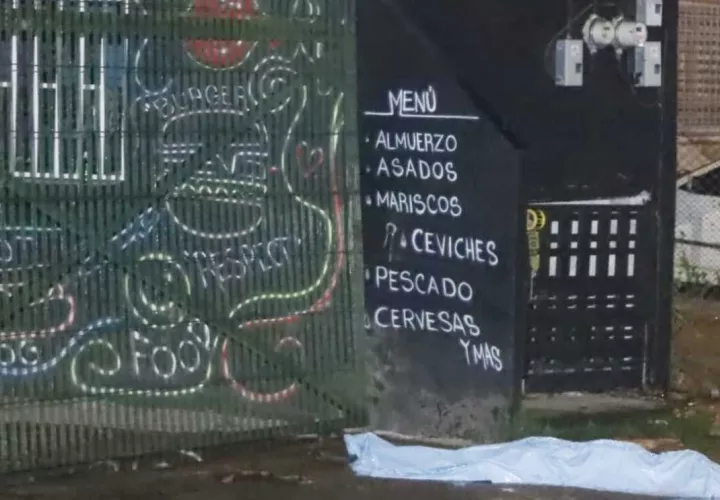 BURGER
"RESPECT"
FOOD
MENÚ
ALMUERZO
ASADOS
MARISCOS
CEVICHES
PESCADO
CERVESAS
Y MAS